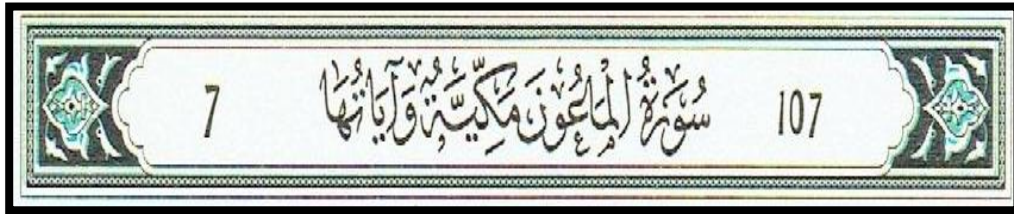 107 سُورَةُ الْمَاعُونَ مَكِّيَّةٌ وَآيَاتُهَا 7